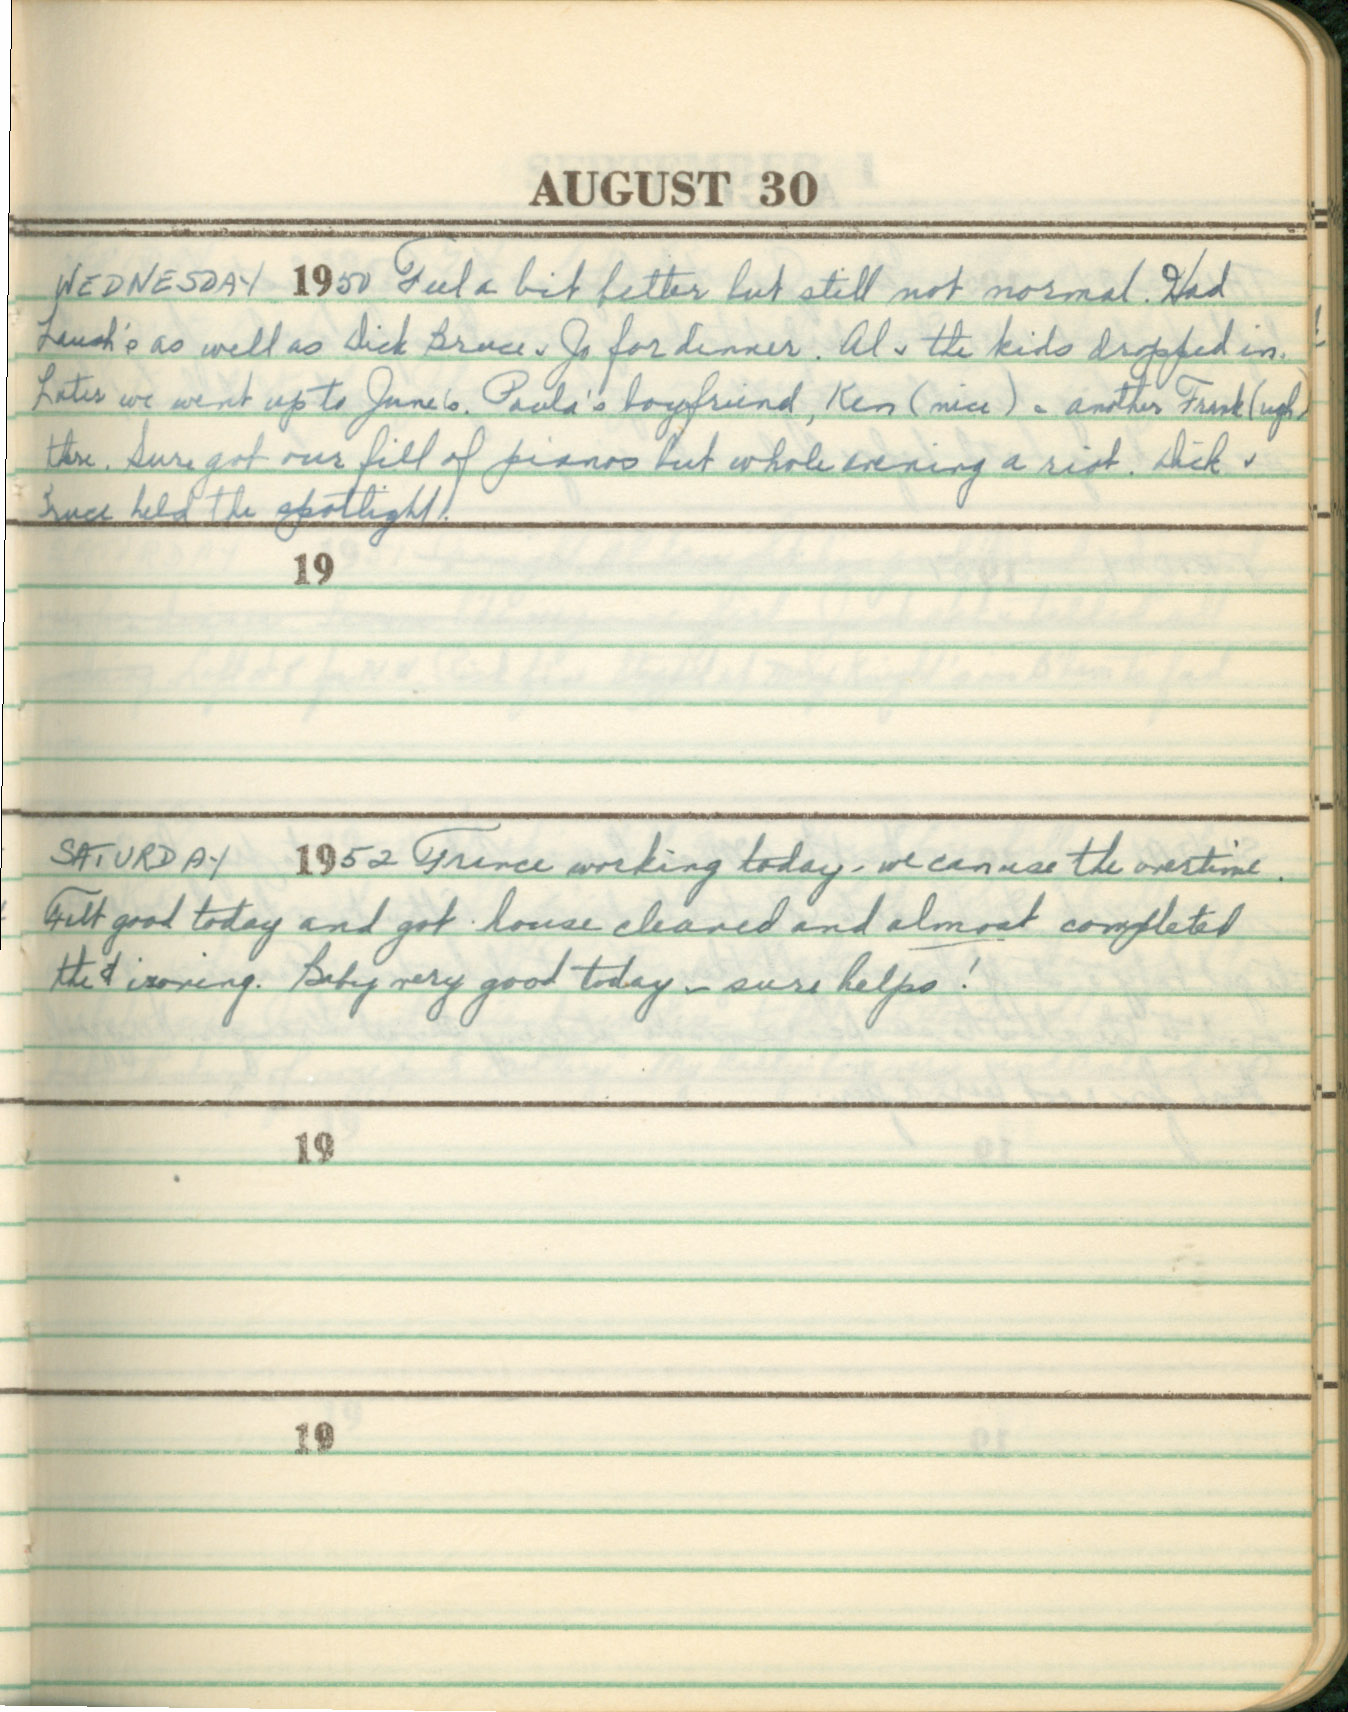 AUGUST 30
WEDNESDAY 1950 Feel a bit better but still not normal. Had
as well as Dick Bruce & Jo for dinner. Al & the kids dropped in.
Later we went up to June's. Paula's boyfriend, Ken (nice) & another Frank (ugh)
there. Sure got our fill of pianos but whole evening a riot. Dick &
Bruce held the spotlight.
19
SATURDAY 1952 France working today - we can use the overtime.
Felt good today and got house cleaned and almost completed
the ironing. Baby very good today - sure helps!
19
19